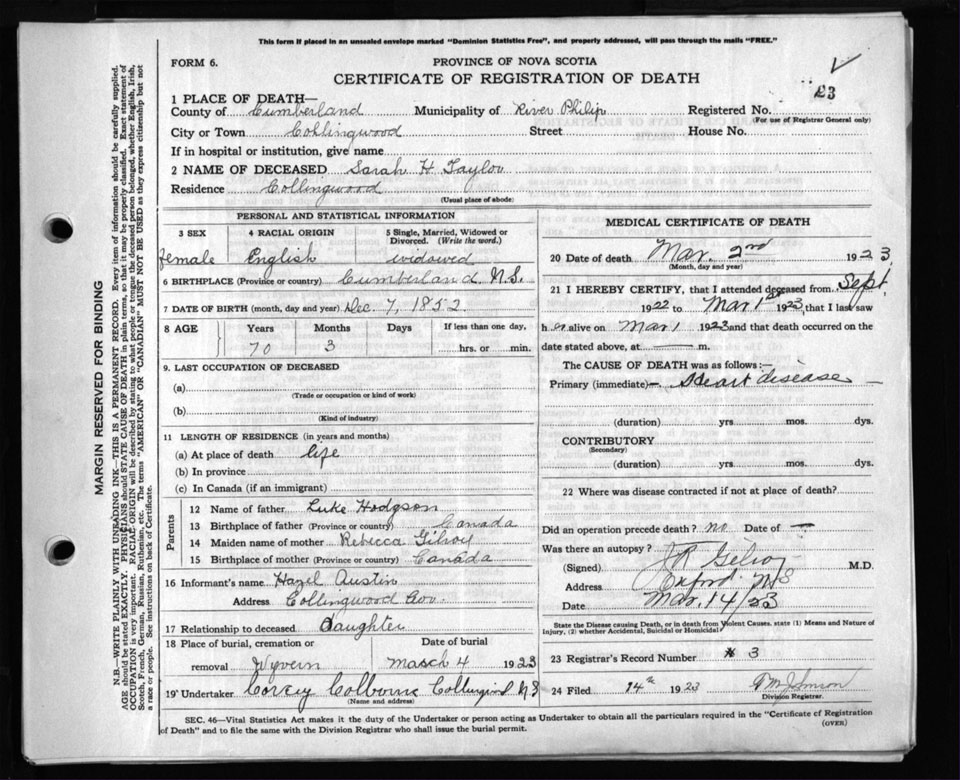 This form if placed in an unsealed envelope marked "Dominion Statistics Free", and properly addressed, will pass through the mails "FREE."
FORM 6.
PROVINCE OF NOVA SCOTIA
CERTIFICATE OF REGISTRATION OF DEATH
£3
1 PLACE OF DEATH—
County of Cumberland Municipality of River Philip Registered No.
(For use of Registrar General only)
City or Town Collingwood Street House No.
If in hospital or institution, give name
2 NAME OF DECEASED Sarah H Taylor
Residence Collingwood
(Usual place of abode)
PERSONAL AND STATISTICAL INFORMATION
3 SEX 4 RACIAL ORIGIN 5 Single, Married, Widowed or Divorced. (Write the word.)
female English widowed
6 BIRTHPLACE (Province or country) Cumberland N.S.
7 DATE OF BIRTH (month, day and year) Dec. 7, 1852
8 AGE Years Months Days If less than one day,
70 3 hrs. or min.
9. LAST OCCUPATION OF DECEASED
(a)
(Trade or occupation or kind of work)
(b)
(Kind of industry)
11 LENGTH OF RESIDENCE (in years and months)
(a) At place of death life
(b) In province
(c) In Canada (if an immigrant)
Parents
12 Name of father Luke Hodgson
13 Birthplace of father (Province or country) Canada
14 Maiden name of mother Rebecca Gilroy
15 Birthplace of mother (Province or country) Canada
16 Informant's name Hazel Austin
Address Collingwood
17 Relationship to deceased daughter
18 Place of burial, cremation or removal Wyvern Date of burial March 4 1923
19 Undertaker Corey Colborne Collingwood N.S
(Name and address)
MEDICAL CERTIFICATE OF DEATH
20 Date of death Mar. 2nd 1923
(Month, day and year)
21 I HEREBY CERTIFY, that I attended deceased from Sept,
1922 to Mar 1st 1923, that I last saw
her alive on Mar 1 1923 and that death occurred on
date stated above, at m.
The CAUSE OF DEATH was as follows:—
Primary (immediate)— Heart disease
(duration) yrs mos. dys.
CONTRIBUTORY
(Secondary)
(duration) yrs. mos. dys.
22 Where was disease contracted if not at place of death?
Did an operation precede death? no Date of
Was there an autopsy?
(Signed) J R Gilroy M.D.
Address Oxford N S
Date Mar, 14/23
State the Disease causing Death, or in death from Violent Causes, state (1) Means and Nature of
Injury, (2) whether Accidental, Suicidal or Homicidal
23 Registrar's Record Number 3
24 Filed 14th 1923
Division Registrar.
SEC. 46—Vital Statistics Act makes it the duty of the Undertaker or person acting as Undertaker to obtain all the particulars required in the "Certificate of Registration
of Death" and to file the same with the Division Registrar who shall issue the burial permit.
(OVER)
MARGIN RESERVED FOR BINDING
N.B.—WRITE PLAINLY WITH UNFADING INK—THIS IS A PERMANENT RECORD. Every item of information should be carefully supplied.
AGE should be stated EXACTLY. PHYSICIANS should STATE CAUSE OF DEATH in plain terms, so that it may be properly classified. Exact statement of
OCCUPATION is very important. RACIAL ORIGIN will be described by stating to what people or tongue the deceased person belonged, whether English, Irish,
Scotch, French, German, Russian, Ruthenian, etc. The terms "AMERICAN" OR "CANADIAN" MUST NOT BE USED as they express citizenship but not
a race or people. See instructions on back of Certificate.